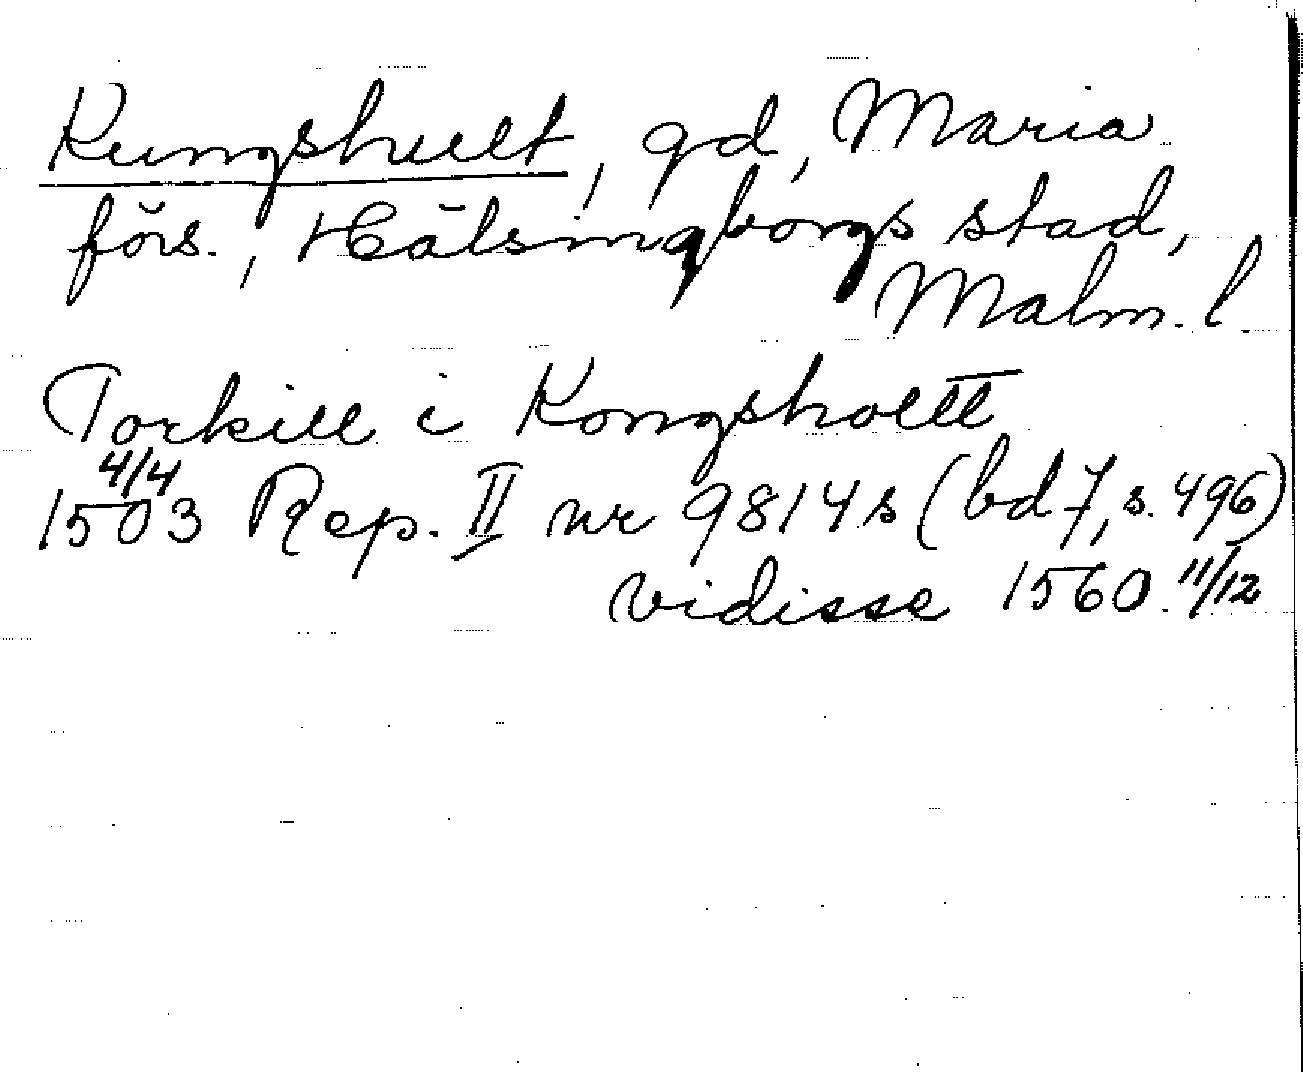 Kungshult, gd, Maria
förs., Hälsingborgs stad,
Malm. l.
Torkill i Kongsholtt
1503 4/4 Rep. II nr 9814 s (bd 7, s. 496)
vidisse 1560 11/12